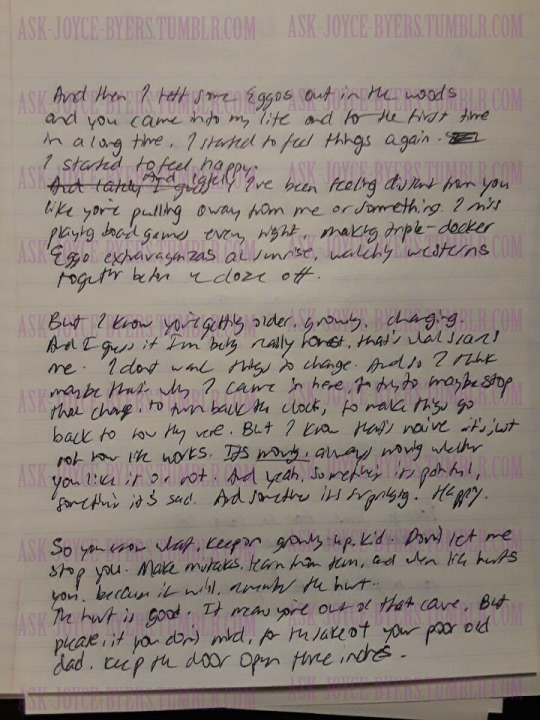 And then I left some Eggos out in the woods
and you came into my life and for the first time
in a long time, I started to feel things again.
I started to feel happy.
And lately I guess And lately I've been feeling distant from you
like you're pulling away from me or something. I miss
playing board games every night, making triple-decker
Eggo extravaganzas at sunrise, watching westerns
together before we doze off.
But I know you're getting older, growing, changing.
And I guess if I'm being really honest, that's what scares
me. I don't want things to change. And so I think
maybe that's why I came in here, to try to maybe stop
that change. to turn back the clock, to make things go
back to how they were. But I know that's naive it's just
not how life works. It's moving, always moving whether
you like it or not. And yeah, sometimes it's painful,
sometimes it's sad. And sometimes it's surprising. Happy.
So you know what, keep on growing up, kid. Don't let me
stop you. Make mistakes, learn from them, and when life hurts
you, because it will, remember the hurt.
The hurt is good. It means you're out of that cave. But
please, if you don't mind, for the sake of your poor old
dad, keep the door open three inches.
ASK-JOYCE-BYERS.TUMBLR.COM